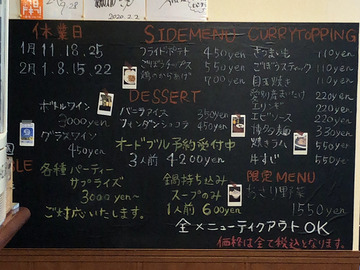 2020.2.2
休業日
1月 11.18.25
2月 1.8.15.22
SIDEMENU
フライドポテト 450yen
ごぼうチップス 550yen
鶏のからあげ 700yen
CURRYTOPPING
さつまいも 110yen
ごぼうスティック 110yen
目玉焼き 110yen
220yen
エリンギ 220yen
エビソース 220yen
博多麺 330yen
豚キムチ 550yen
牛すじ 550yen
ボトルワイン
3000yen
グラスワイン
450yen
DESSERT
バニラアイス 350yen
フォンダンショコラ 450yen
オードブル予約受付中
3人前 4200yen
各種パーティー
サプライズ
3000yen~
ご対応いたします。
鍋持ち込み
スープのみ
1人前 600yen
限定MENU
あさり野菜
1550yen
全メニューテイクアウトOK
価格は全て税込となります。